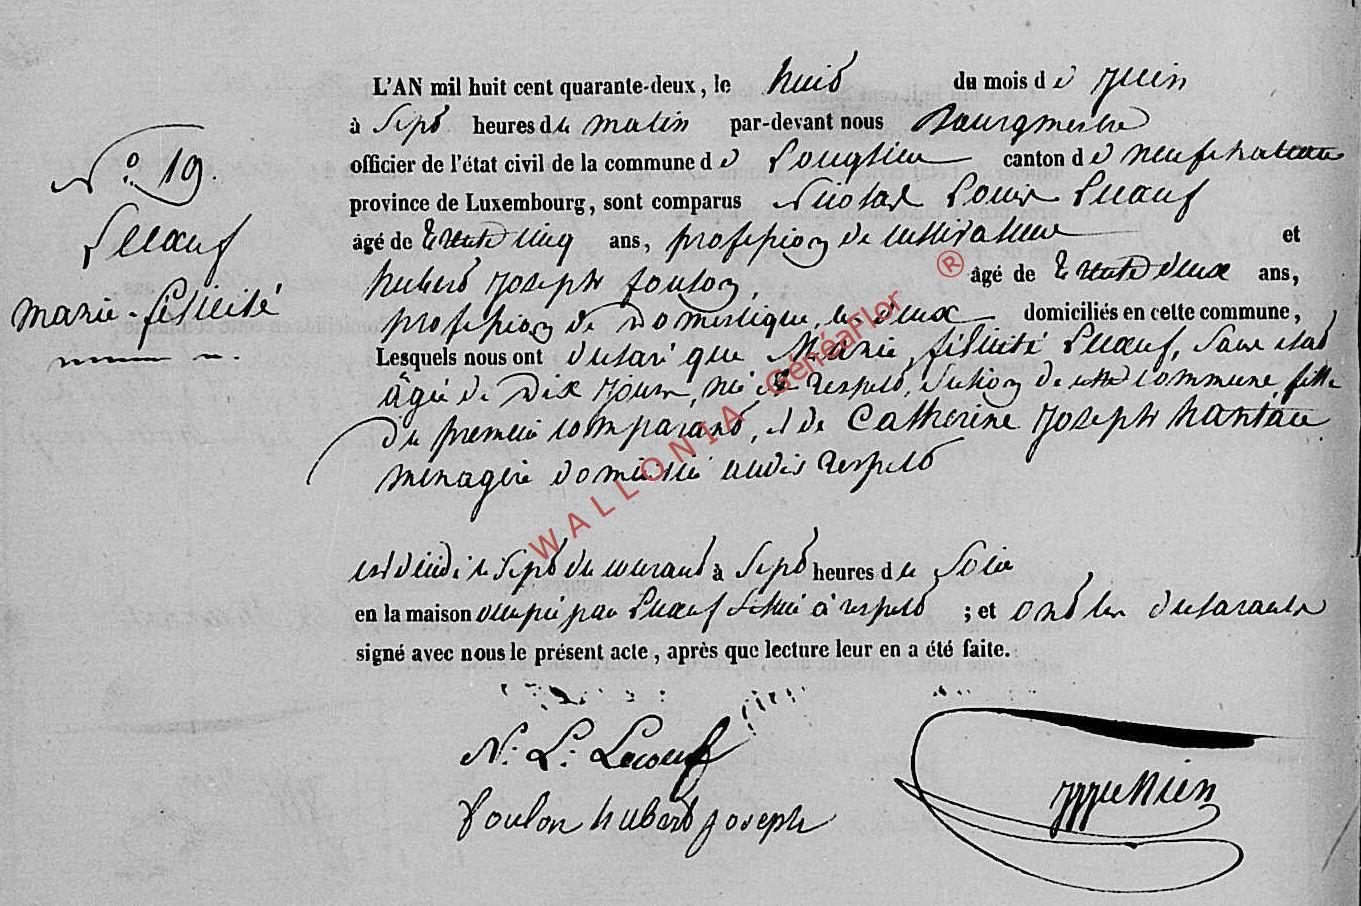 N.° 19.
Lecoeuf
marie-félicité
L'AN mil huit cent quarante-deux, le huit du mois d e juin
à Sept heures du matin par-devant nous Bourgmestre
officier de l'état civil de la commune d e Longlier canton d e neufchateau
province de Luxembourg, sont comparus Nicolas Louis Lecoeuf
âgé de trente cinq ans, profession de cultivateur et
hubert joseph foulon, âgé de trente deux ans,
profession de Domestique, les deux domiciliés en cette commune,
Lesquels nous ont declaré que Marie félicité Lecoeuf, sans etat
âgée de Dix jours, née à respelt, section de cette commune fille
du premier comparant, et de Catherine joseph
menagère domiciliée audit respelt
est décédé le sept du courant à Sept heures du Soir
en la maison occupée par Lecoeuf située à respelt ; et ont les declarants
signé avec nous le présent acte, après que lecture leur en a été faite.
N. L. Lecoeuf
foulon hubert joseph
WALLONIA GénéaFlor ®